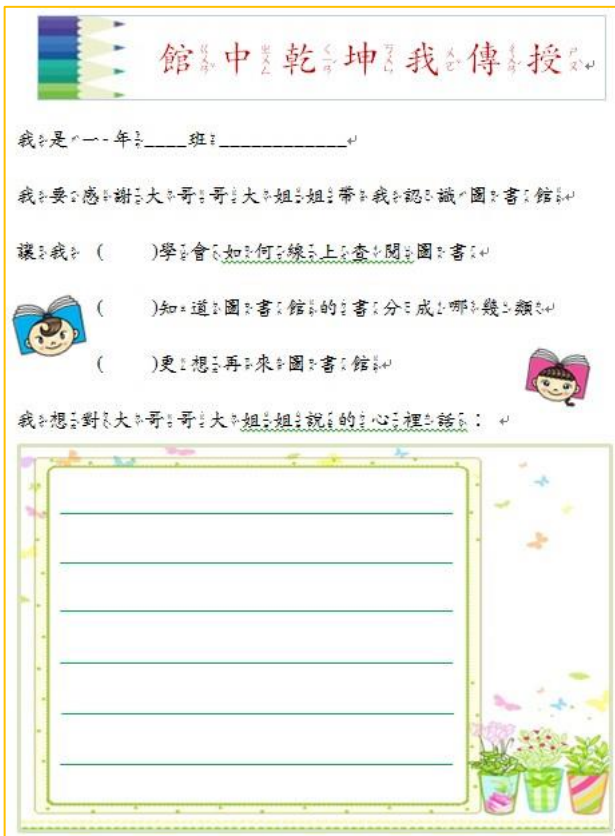 館中乾坤我傳授
我是一年____班____________
我要感謝大哥哥大姐姐帶我認識圖書館
讓我 (　　)學會如何線上查閱圖書
(　　)知道圖書館的書分成哪幾類
(　　)更想再來圖書館
我想對大哥哥大姐姐說的心裡話：